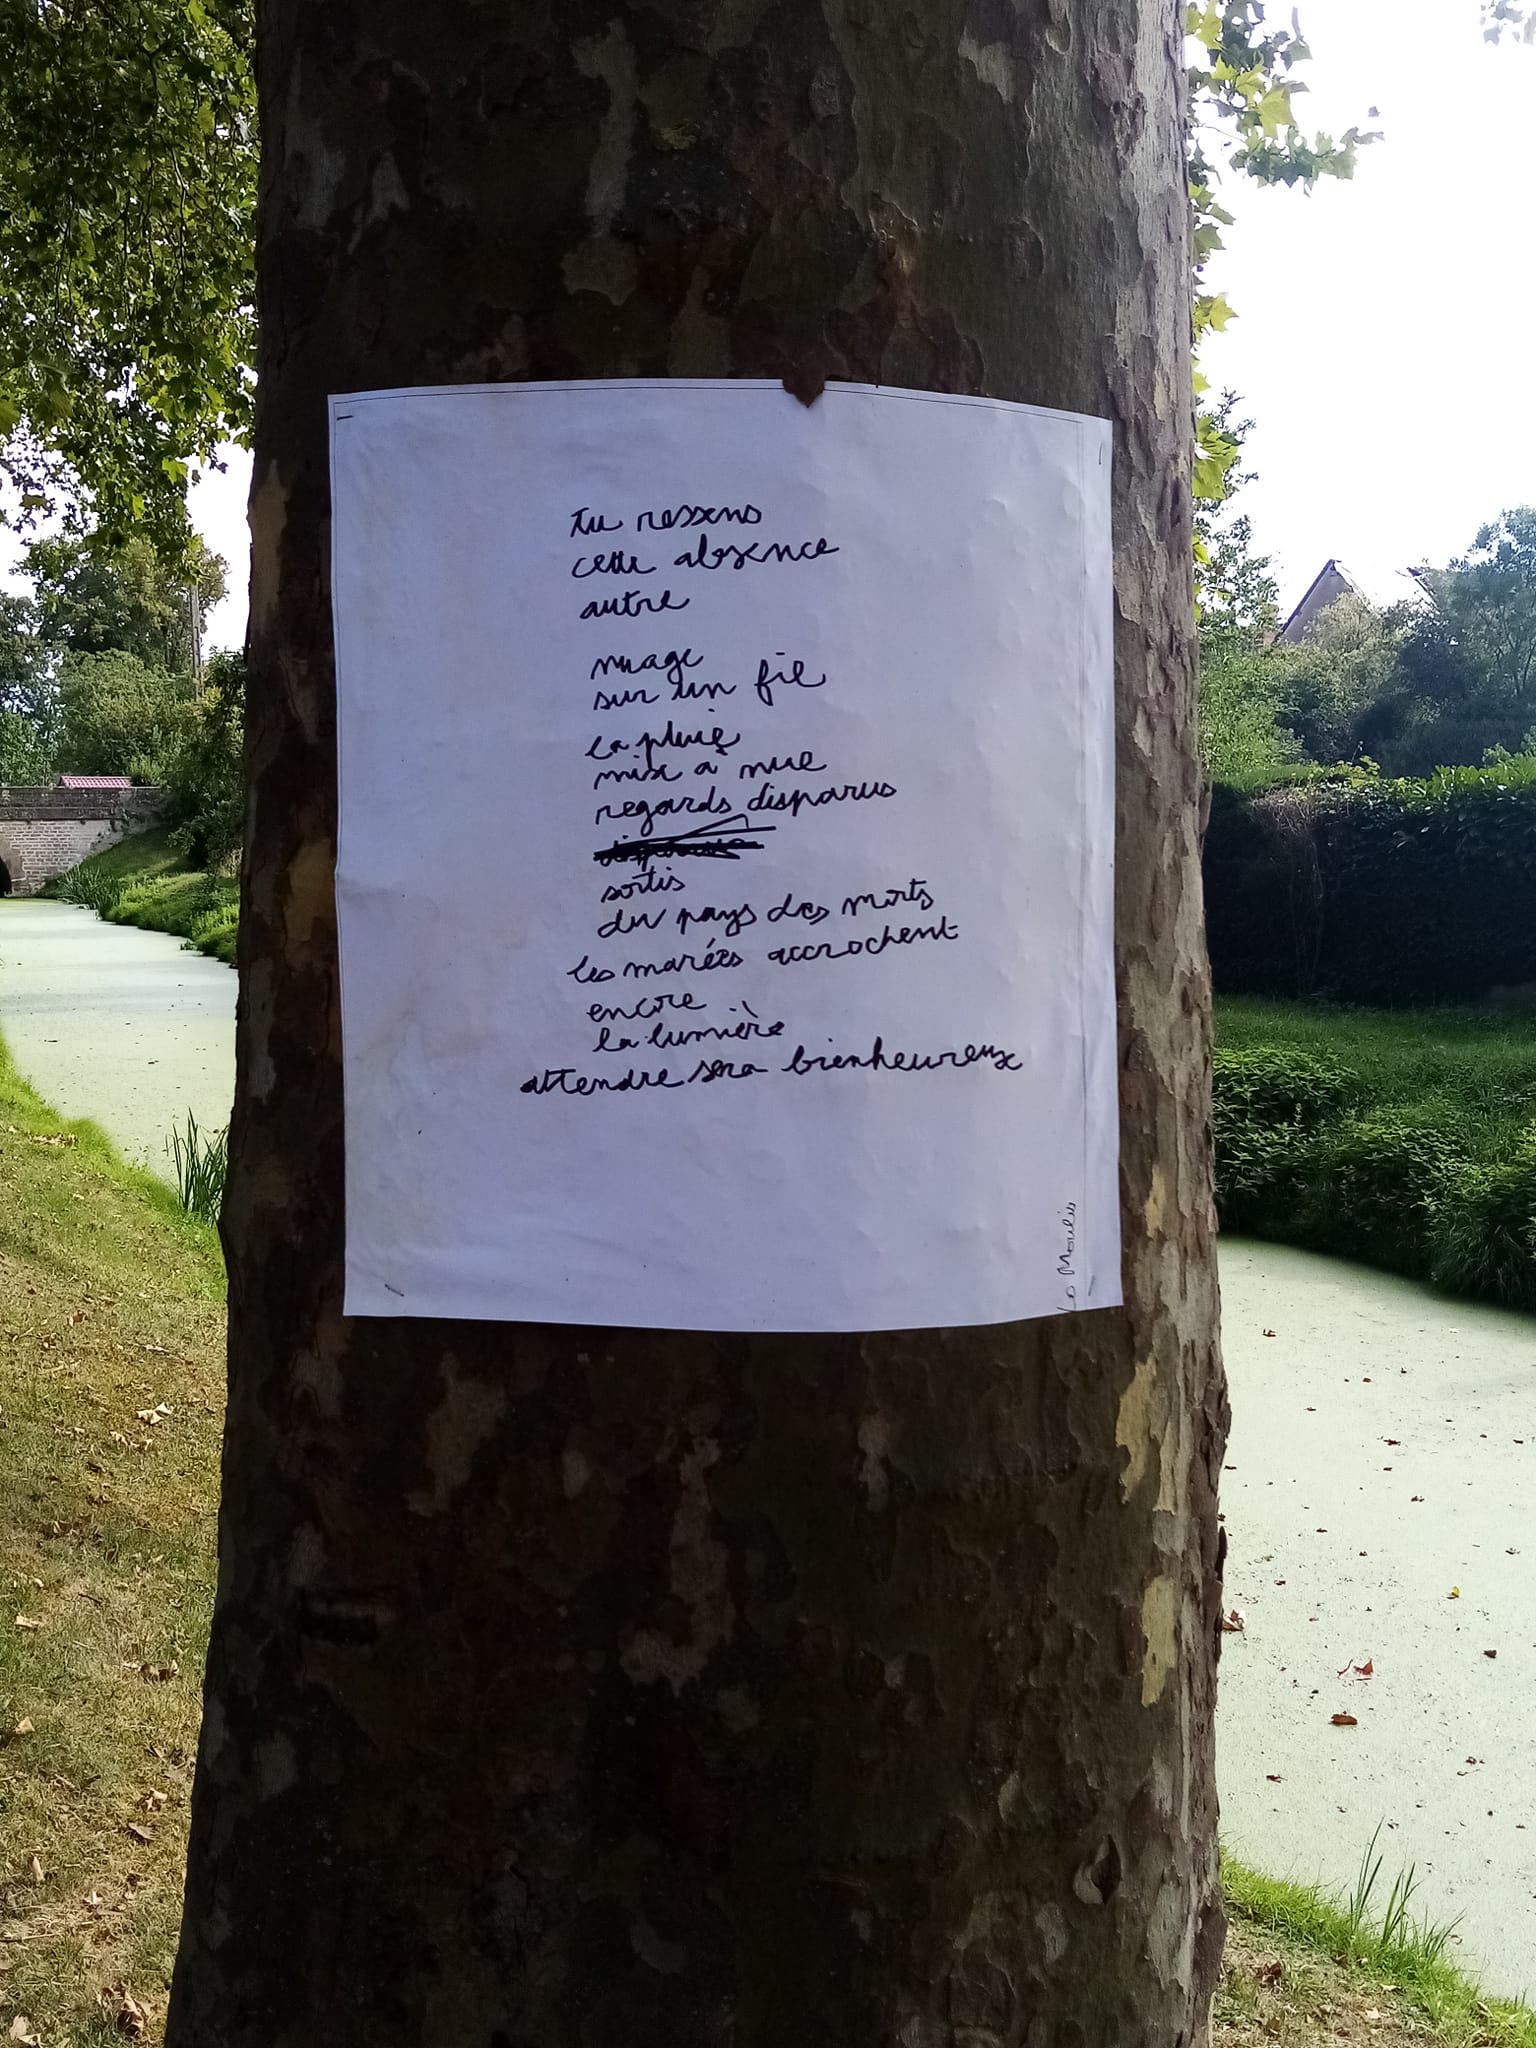 tu ressens
cette absence
autre
nuage
sur un fil
la pluie
mise à nue
regards disparus
sortis
du pays des morts
les marées accrochent
encore
la lumière
attendre sera bienheureux